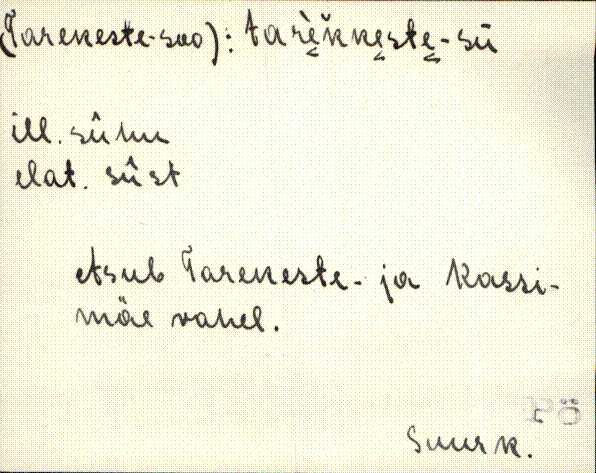 (Tarekeste-soo): tarè̬k̆ke̬ste̬-sū
ill. sûhu
elat. sûst
Asub Tarekeste- ja Kassi-
mäe vahel.
Pö
Suurk.